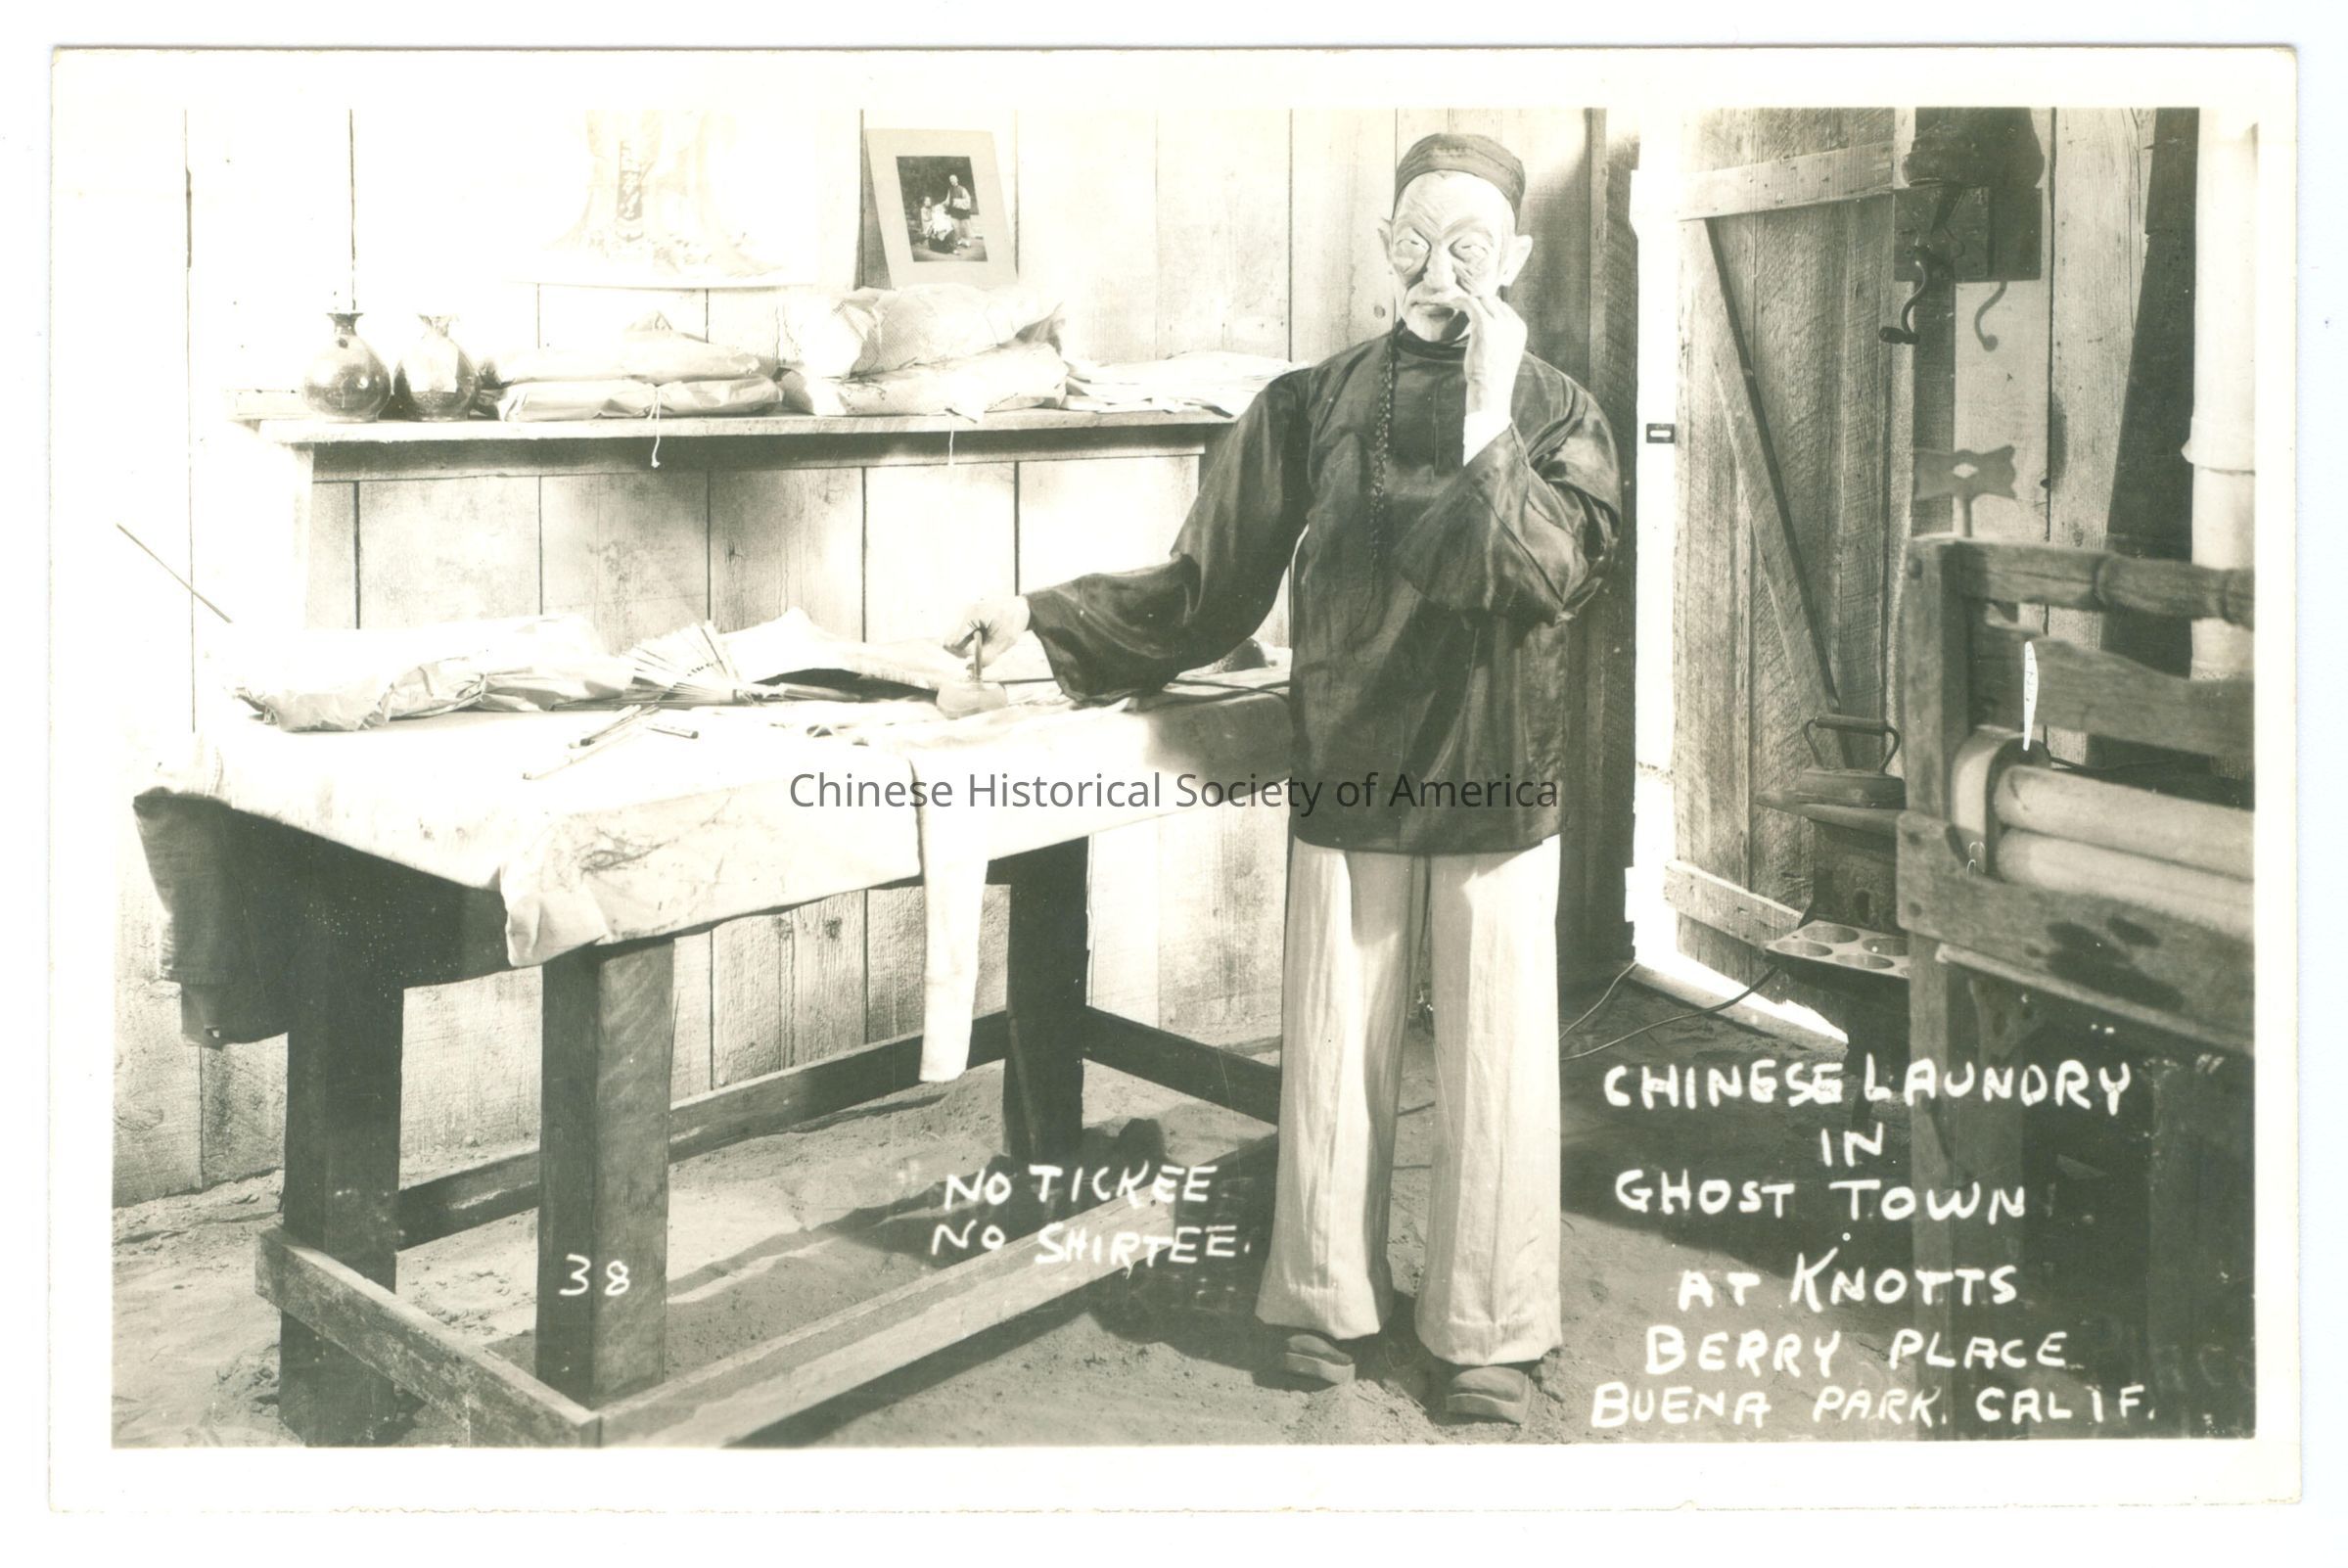 Chinese Historical Society of America
NO TICKEE
NO SHIRTEE.
38
CHINESE LAUNDRY
IN
GHOST TOWN
AT KNOTTS
BERRY PLACE
BUENA PARK. CALIF.